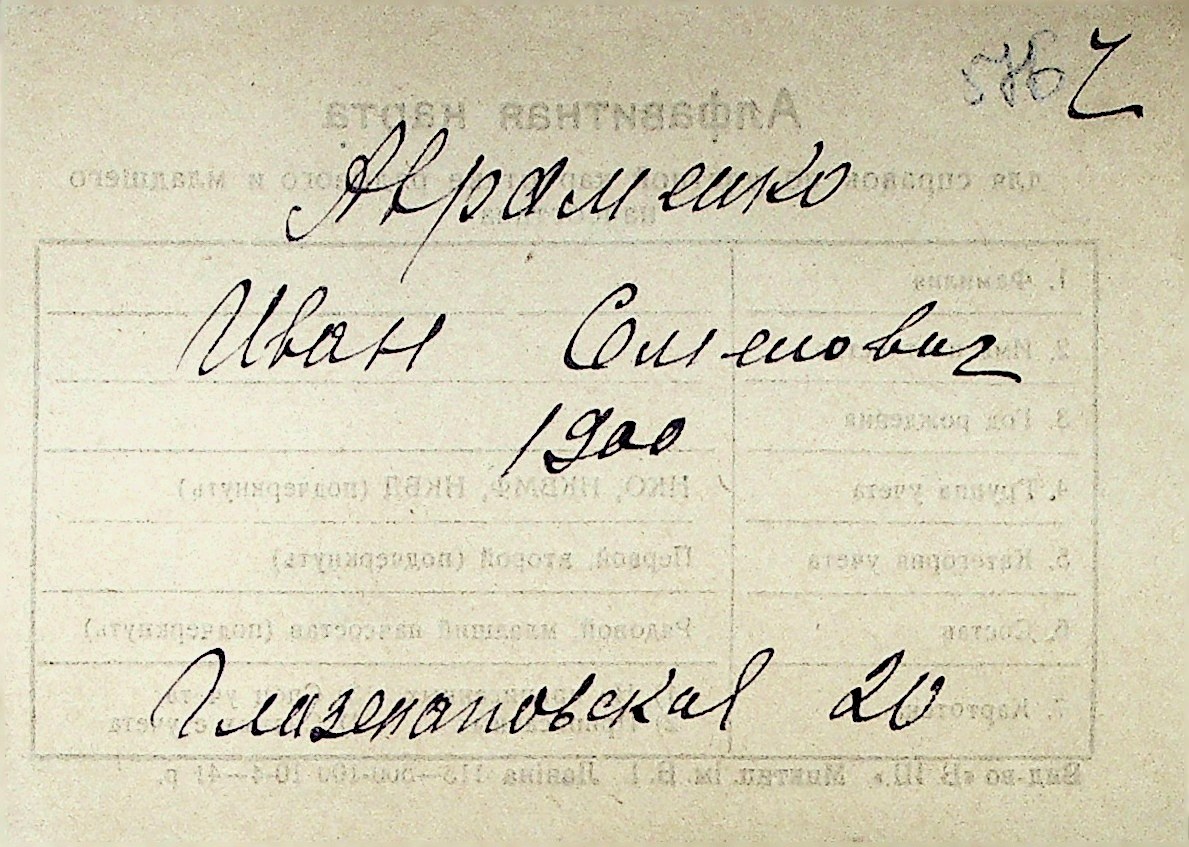 576 ч
Авраменко
Иван Семенович
1900
Глазенаповская 20
Алфавитная карта
для справок
и младшего
1. Фамилия
2. Имя
3. Год рождения
4. Группа учета НКО, НКВМФ, НКВД (подчеркнуть)
5. Категория учета Первой, второй (подчеркнуть)
6. Состав Рядовой, младший начсостав (подчеркнуть)
7. Картотека
учета